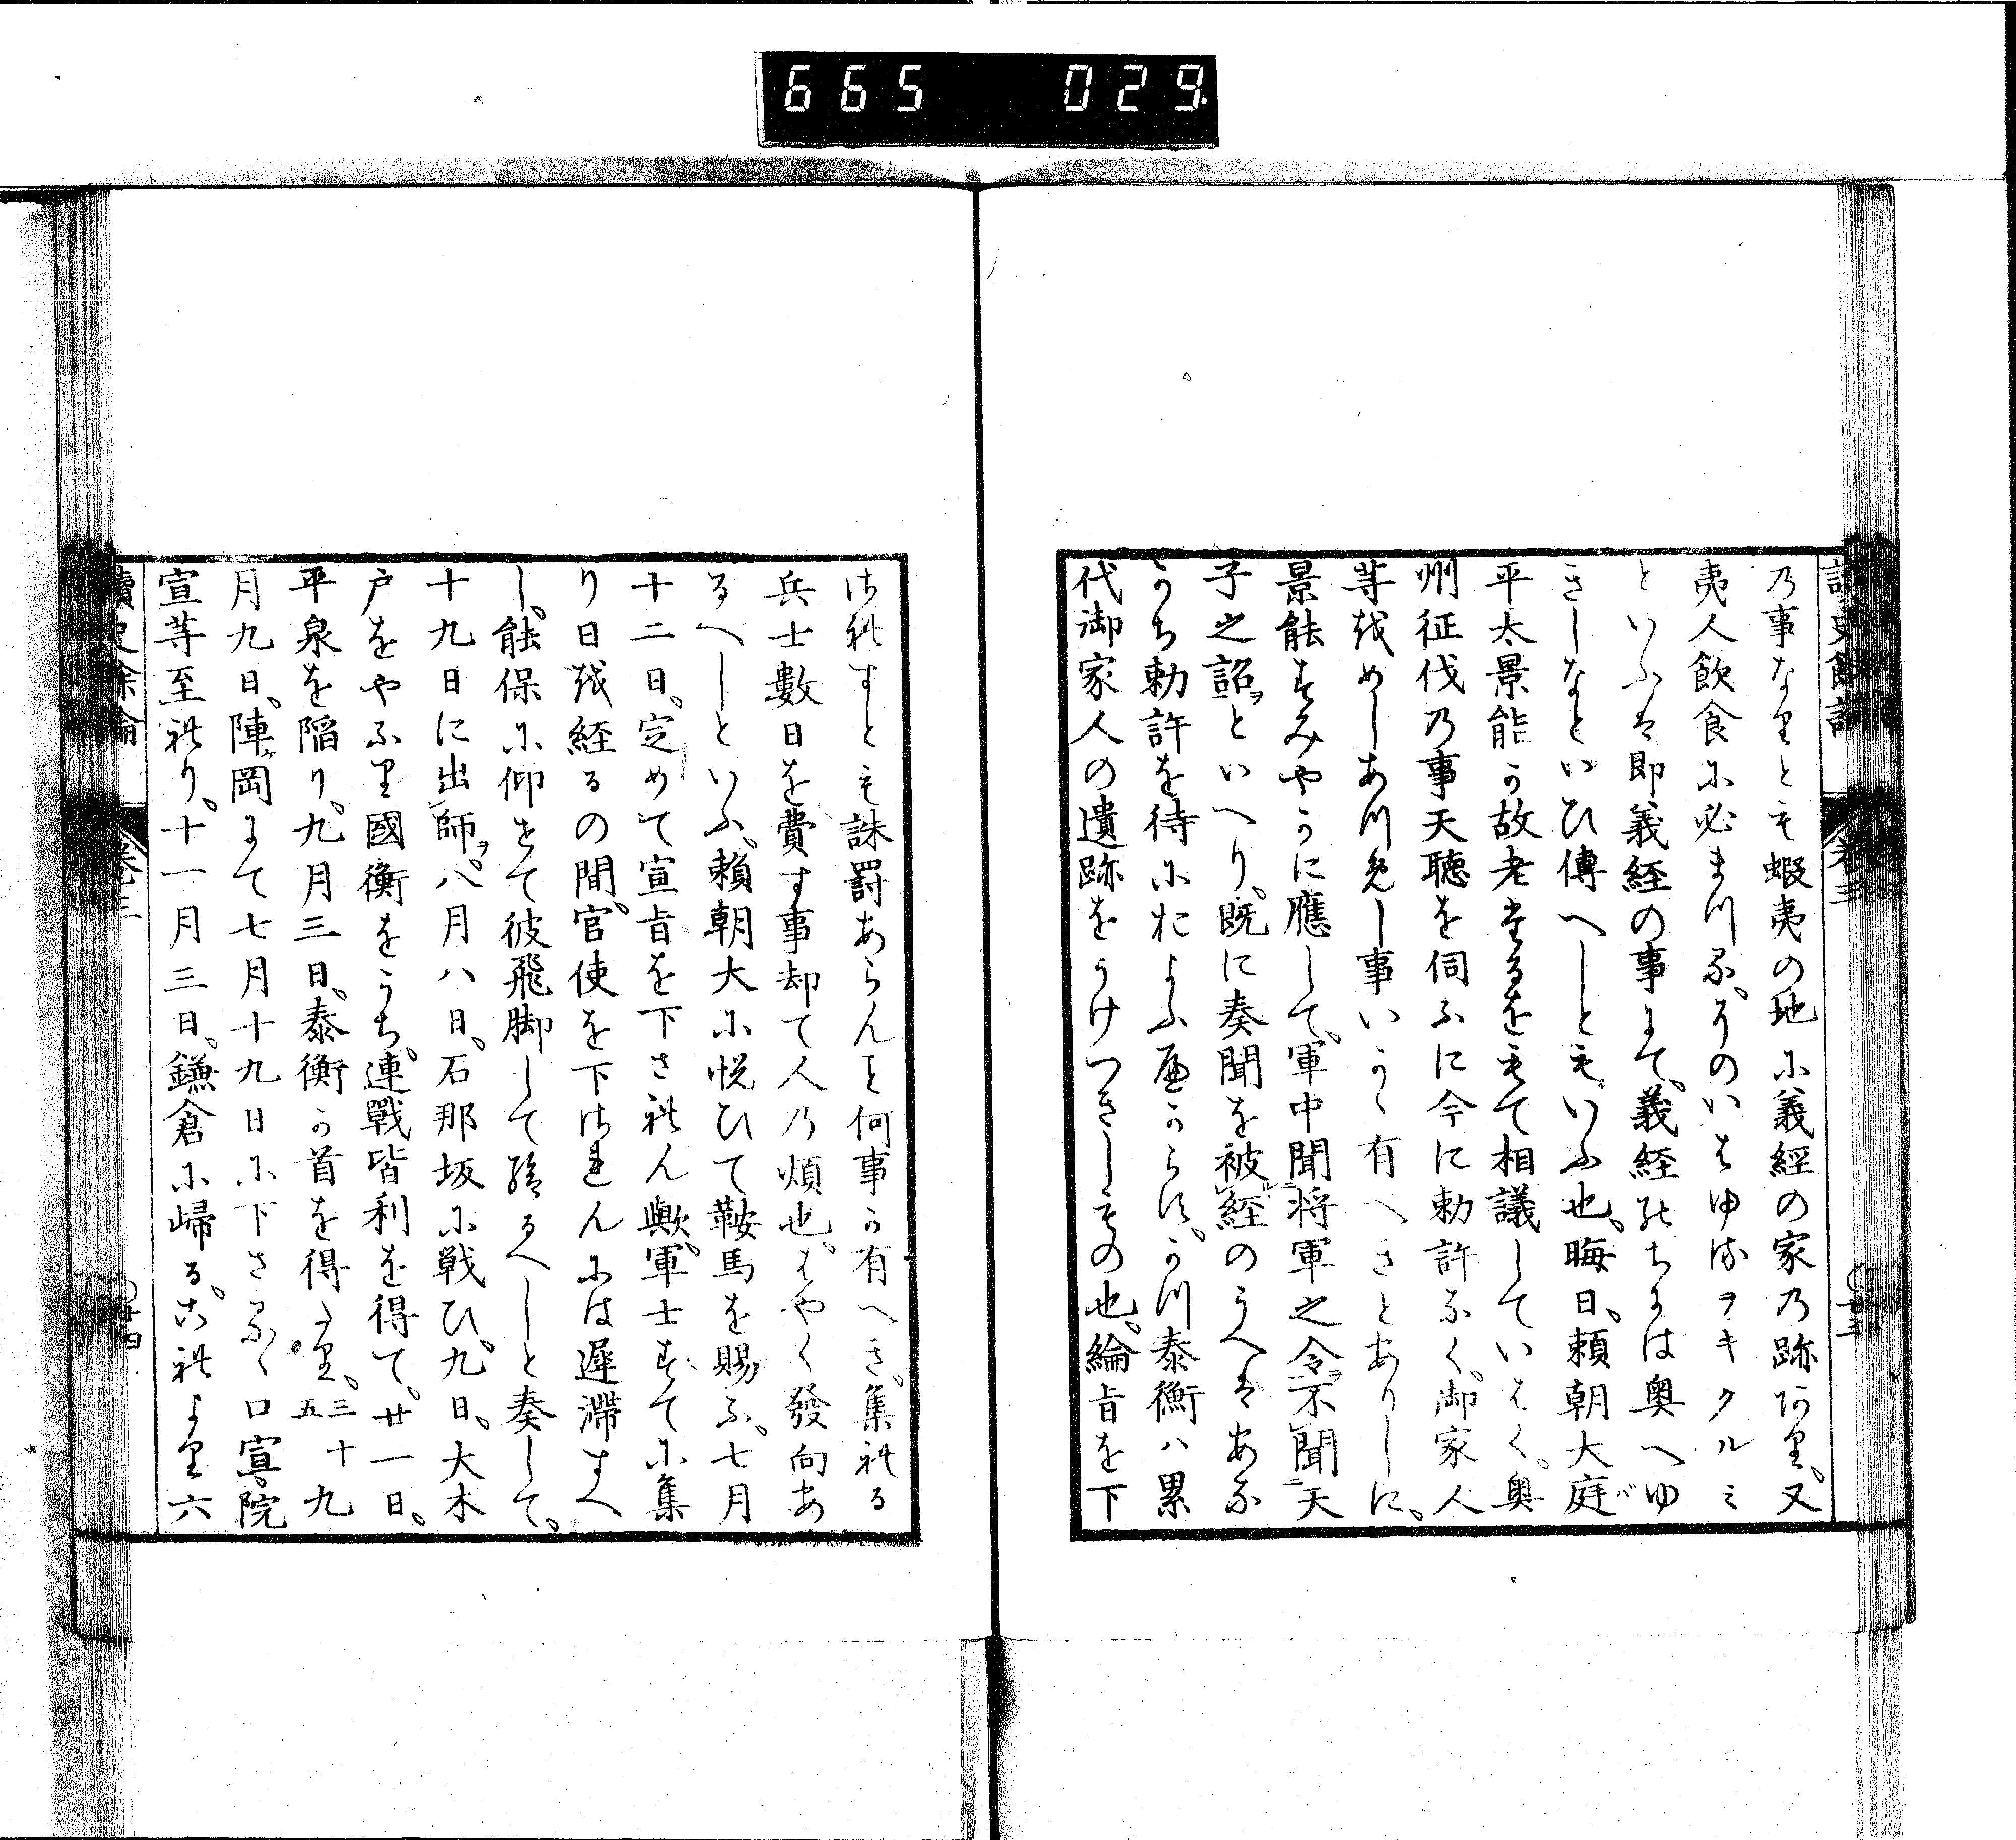 665 029.
讀史餘論
卷三
廿三
乃事なりとも蝦夷の地に義經の家乃跡あり。又
夷人飲食に必まつる。そのいはゆるヲキクルミ
といふは即義経の事にて、義経のちには奥へゆ
きしなといひ傳へしとも、いふ也。晦日、頼朝大庭
平太景能か故老たるをもて相議していはく、奥
州征伐乃事天聴を伺ふに今に勅許なく、御家人
等越めしあつめし事いかゝ有へきとありしに。
景能すみやかに應して、軍中聞将軍之令ヲ不聞ニ天
子之詔ヲといへり。既に奏聞を被経のうへはあな
かち勅許を待におよふ﨑からす。かつ泰衡ハ累
代御家人の遺跡をうけつきしもの也。綸旨を下
されすとも誅罰あらんと何事か有へき。集れる
兵士數日を費す事却て人乃煩也。はやく發向あ
るへしといふ。頼朝大に悦ひて鞍馬を賜ふ。七月
十二日、定めて宣旨を下されん歟。軍士すてに集
り日越経るの間、官使を下されんには遅滞すへ
し、能保に仰せて彼飛脚して給るへしと奏して。
十九日に出師ヲ。八月八日、石那坂に戦ひ、九日、大木
戸をやふり國衡をうち、連戰皆利を得て、廿一日。
平泉を陥り。九月三日、泰衡か首を得たり。三十九
五
月九日、陣岡にて七月十九日に下さるゝ口宣院
宣等至れり。十一月三日、鎌倉に歸る。これより六
讀史餘論
卷三
廿四